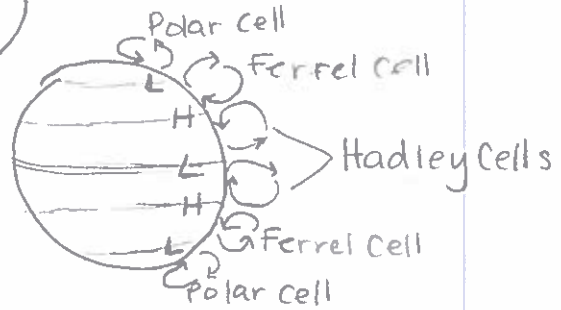 Polar Cell
L
Ferrel Cell
H
Hadley Cells
L
H
Ferrel Cell
L
Polar Cell